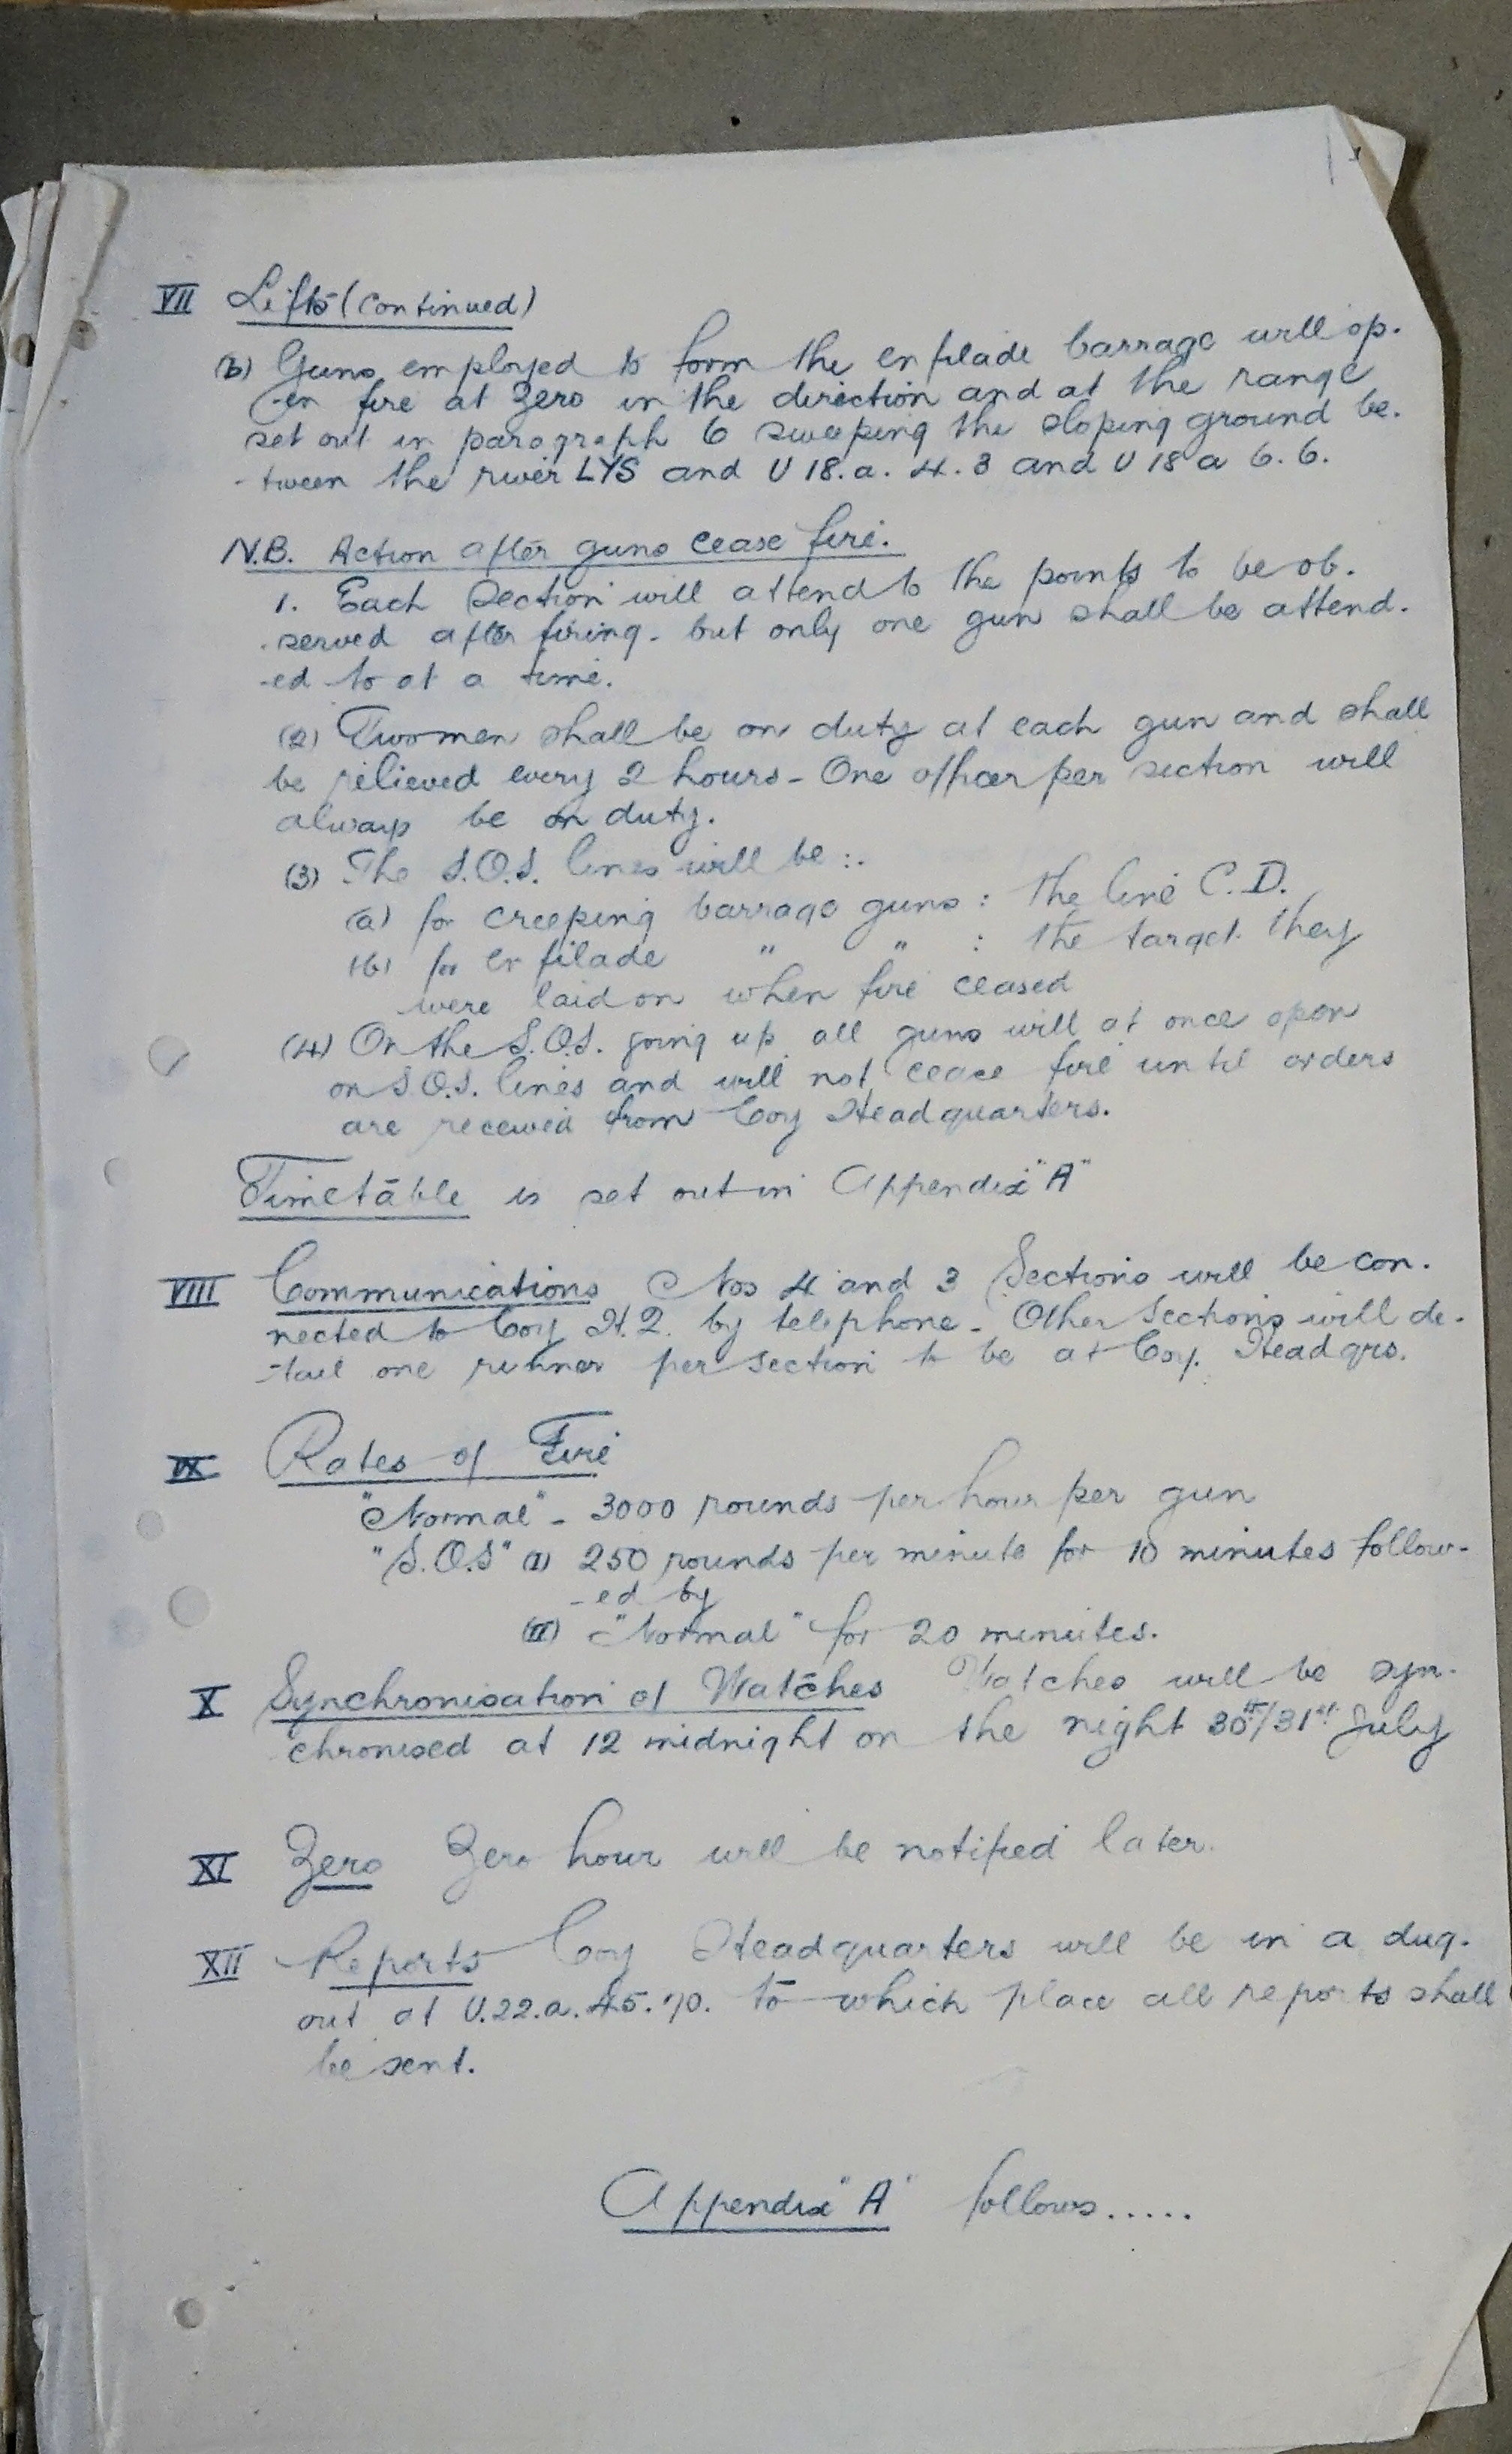 VII Lifts (continued)
(b) Guns employed to form the enfilade barrage will op-
-en fire at Zero in the direction and at the range
set out in paragraph 6 sweeping the sloping ground be-
-tween the river LYS and U 18.a. 4.3 and U 18 a 6.6.
N.B. Action after guns cease fire.
1. Each Section will attend to the points to be ob-
-served after firing - but only one gun shall be attend-
-ed to at a time.
(2) Two men shall be on duty at each gun and shall
be relieved every 2 hours - One officer per section will
always be on duty.
(3) The S.O.S. lines will be :-
(a) for creeping barrage guns : the line C.D.
(b) for enfilade " " : the target they
were laid on when fire ceased
(4) On the S.O.S. going up all guns will at once open
on S.O.S. lines and will not cease fire until orders
are received from Coy Headquarters.
Timetable is set out in Appendix "A"
VIII Communications Nos 4 and 3 Sections will be con-
nected to Coy H.Q. by telephone - Other Sections will de-
-tail one runner per section to be at Coy. Headqrs.
IX Rates of Fire
"Normal" - 3000 rounds per hour per gun
"S.O.S" (I) 250 rounds per minute for 10 minutes follow-
-ed by
(II) "Normal" for 20 minutes.
X Synchronisation of Watches Watches will be syn-
chronised at 12 midnight on the night 30th/31st July
XI Zero Zero hour will be notified later.
XII Reports Coy Headquarters will be in a dug-
out at U.22.a.45.70. to which place all reports shall
be sent.
Appendix "A" follows.....